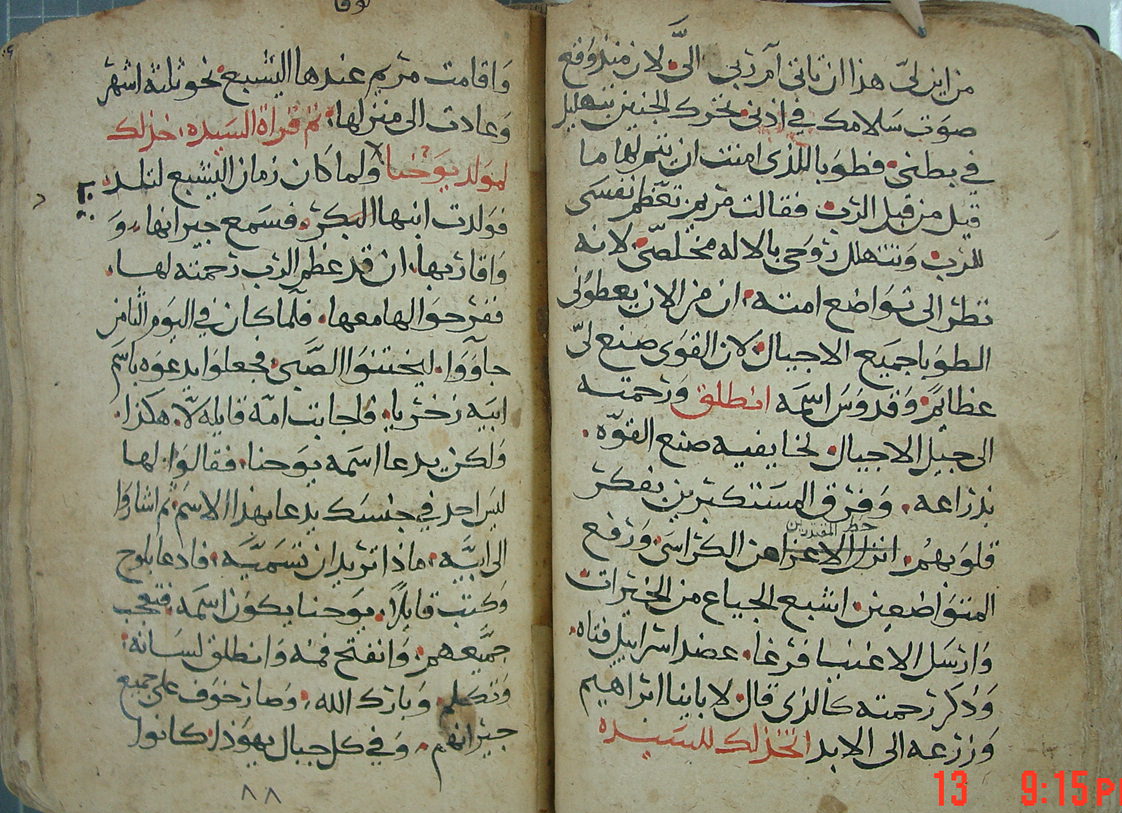 من اين لي هذا ان تاتي ام ربي الىَّ لان منذ وقع
صوت سلامك في اذني تحرك الجنين بتهليل
في بطني فطوبا للذي امنت ان يتم لها ما
قيل من قبل الرب فقالت مريم تعظم نفسي
للرب وتتهلل روحي بالاله مخلصي لانه
نظر الى تواضع امته ان من الان يعطوني
الطوبا جميع الاجيال لان القوى صنع لي
عظايم وقدوس اسمه انطلق ورحمته
الى جيل الاجيال لخايفيه صنع القوّه
بذراعه وفرق المستكبرين بفكر
حط المقتدرين
قلوبهم انزل الاعزا عن الكراسي ورفع
المتواضعين اشبع الجياع من الخيرات
وارسل الاغنيا فرغا عضد اسراييل فتاه
وذكر رحمته كالذى قال لاباينا ابراهيم
وزرعه الى الابد للسيده
لوقا
واقامت مريم عندها اليشبع نحو ثلثة اشهر
وعادت الى منزلها تم قراة السيده
لمولد يوحنا ولما كان زمان اليشبع لتلد
فولدت ابنها البكر فسمع جيرانها و
واقاربها ان قد عظم الرب رحمته لها
ففرحوا لها معها فلما كان في اليوم الثامن
جاووا ليختنوا الصبي فجعلوا يدعوه باسم
ابيه زخريا فاجابت امه قايله لا هكذا
ولكن يدعا اسمه يوحنا فقالوا لها
ليس احد في جنسك يدعا بهذا الاسم ثم اشاروا
الى ابيه ماذا تريد ان تسميه فادعا بلوح
وكتب قايلاً يوحنا يكون اسمه فتعجب
جميعهم وانفتح فمه وانطلق لسانه
وتكلم وبارك الله وصار خوف على جميع
جيرانهم وفي كل جبال يهوذا كانوا
٨٨
13 9:15 P